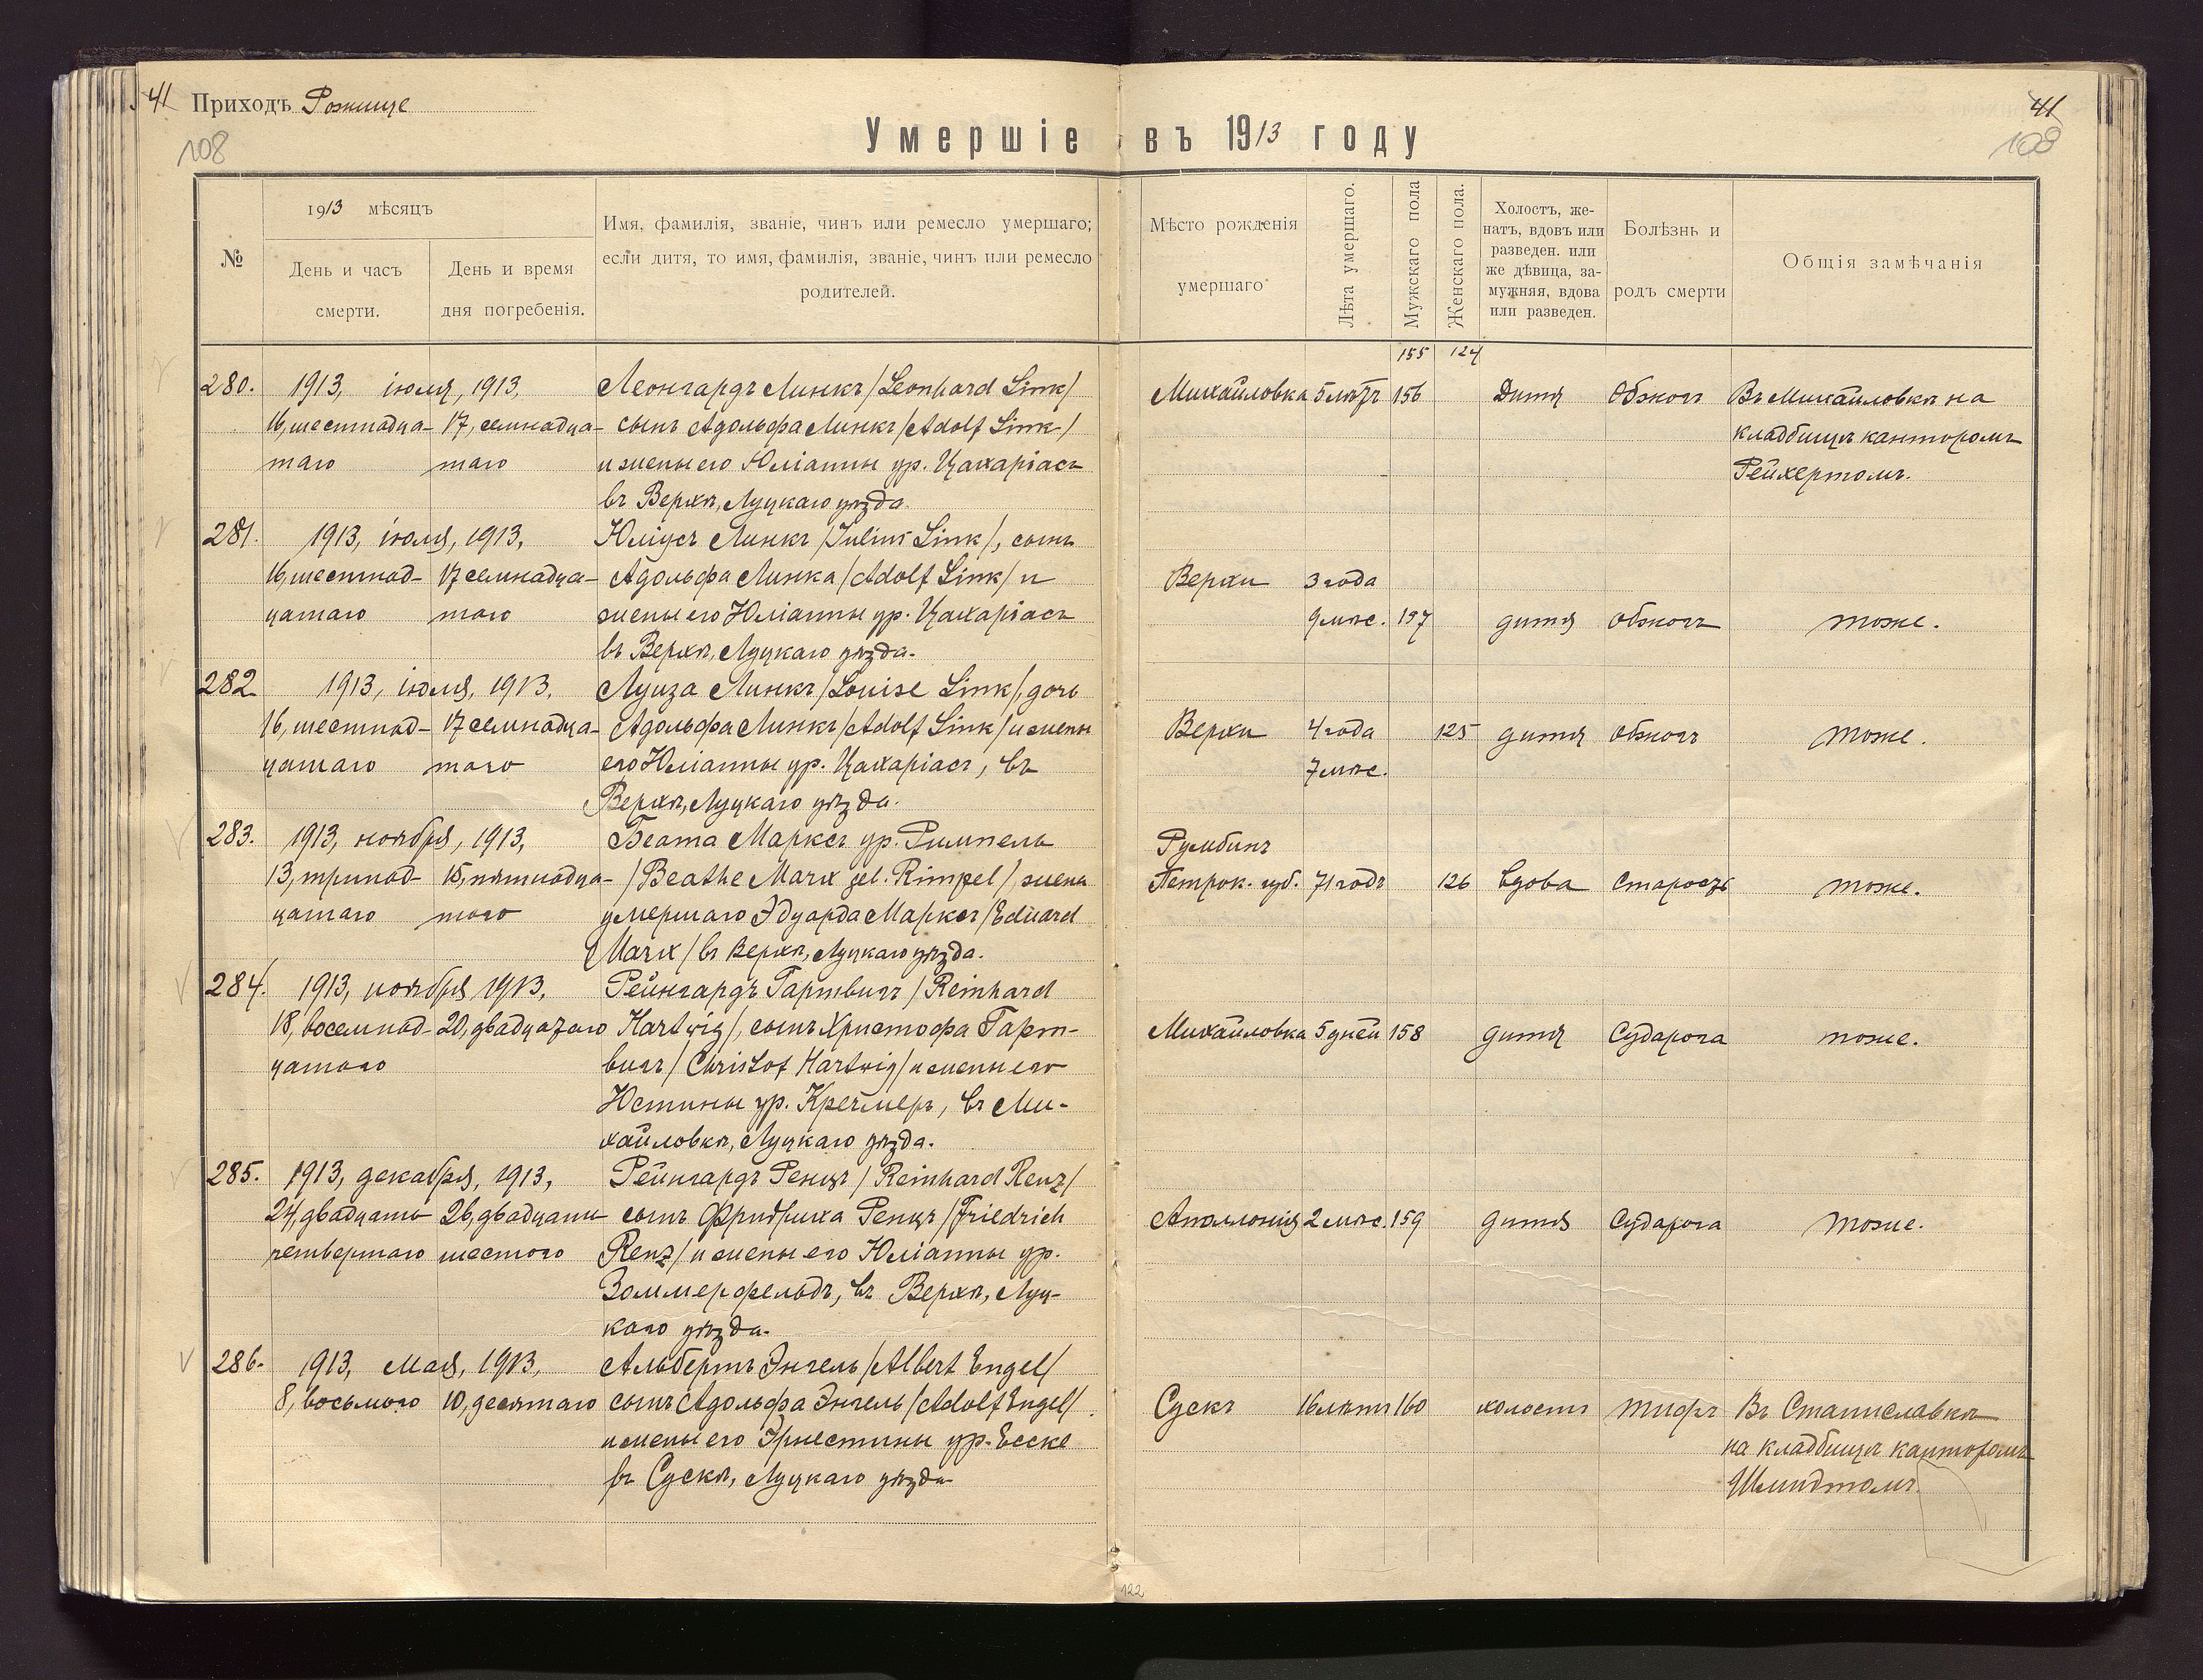 41 Приходъ Рожище
41
108
108
Умершіе въ 1913 году
№
1913 мѣсяцъ
День и часъ
смерти.
День и время
дня погребенія.
Имя, фамилія, званіе, чинъ или ремесло умершаго;
если дитя, то имя, фамилія, званіе, чинъ или ремесло
родителей.
Мѣсто рожденія
умершаго
Лѣта умершаго.
Мужскаго пола
Женскаго пола.
Холостъ, же-
натъ, вдовъ или
разведен. или
же дѣвица, за-
мужняя, вдова
или разведен.
Болѣзнь и
родъ смерти
Общія замѣчанія
155 124
280. 1913, іюля, 1913, Леонгардъ Линкъ /Leonhard Link/ Михайловка 5 лѣтъ 156 Дитя Обжогъ Въ Михайловкѣ на
16, шестнадца- 17, семнадца- сынъ Адольфа Линкъ /Adolf Link/ кладбищѣ канторомъ
таго таго и жены его Юліанны ур. Цахаріасъ Рейхертомъ.
въ Верхѣ, Луцкаго уѣзда.
281. 1913, іюля, 1913, Юліусъ Линкъ /Julius Link/, сынъ
16, шестнад- 17 семнадца- Адольфа Линка /Adolf Link/ и Верхи 3 года
цатаго таго жены его Юліанны ур. Цахаріасъ 9 мѣс. 157 дитя обжогъ тоже.
въ Верхѣ, Луцкаго уѣзда.
282 1913, іюля, 1913, Луиза Линкъ /Louise Link/, дочь
16, шестнад- 17 семнадца- Адольфа Линкъ /Adolf Link/ и жены Верхи 4 года 125 дитя обжогъ тоже.
цатаго таго его Юліанны ур. Цахаріасъ, въ 7 мѣс.
Верхѣ, Луцкаго уѣзда.
283. 1913, ноября, 1913, Беата Марксъ ур. Римпель Румбинъ
13, тринад- 15, пятнадца- /Beathe Marx gel. Rimpel/, жена Петрок. губ. 71 годъ 126 вдова старость тоже.
цатаго таго умершаго Эдуарда Марксъ /Eduard
Marx/ въ Верхѣ, Луцкаго уѣзда.
284. 1913, ноября, 1913, Рейнгардъ Гартвигъ /Reinhard
18, восемнад- 20, двадцатаго Hartwig/, сынъ Христофа Гарт- Михайловка 5 дней 158 дитя Судорога тоже.
цатаго вигъ /Christof Hartwig/ и жены его
Юстины ур. Кречмеръ, въ Ми-
хайловкѣ, Луцкаго уѣзда.
285. 1913, декабря, 1913, Рейнгардъ Ренцъ /Reinhard Renz/
24, двадцать 26, двадцать сынъ Фридриха Ренцъ /Friedrich Аполлонія 2 мѣс. 159 дитя Судорога тоже.
четвертаго шестого Renz/ и жены его Юліанны ур.
Зоммерфельдъ, въ Верхѣ, Луц-
каго уѣзда.
286. 1913, Мая, 1913, Альбертъ Энгель /Albert Engel/
8, восьмого 10, десятаго сынъ Адольфа Энгель /Adolf Engel/ Сускъ 16 лѣтъ 160 холостъ тифъ Въ Станиславкѣ
и жены его Эрнестины ур. Еске на кладбищѣ канторомъ
въ Сускѣ, Луцкаго уѣзда Шмидтомъ.
122